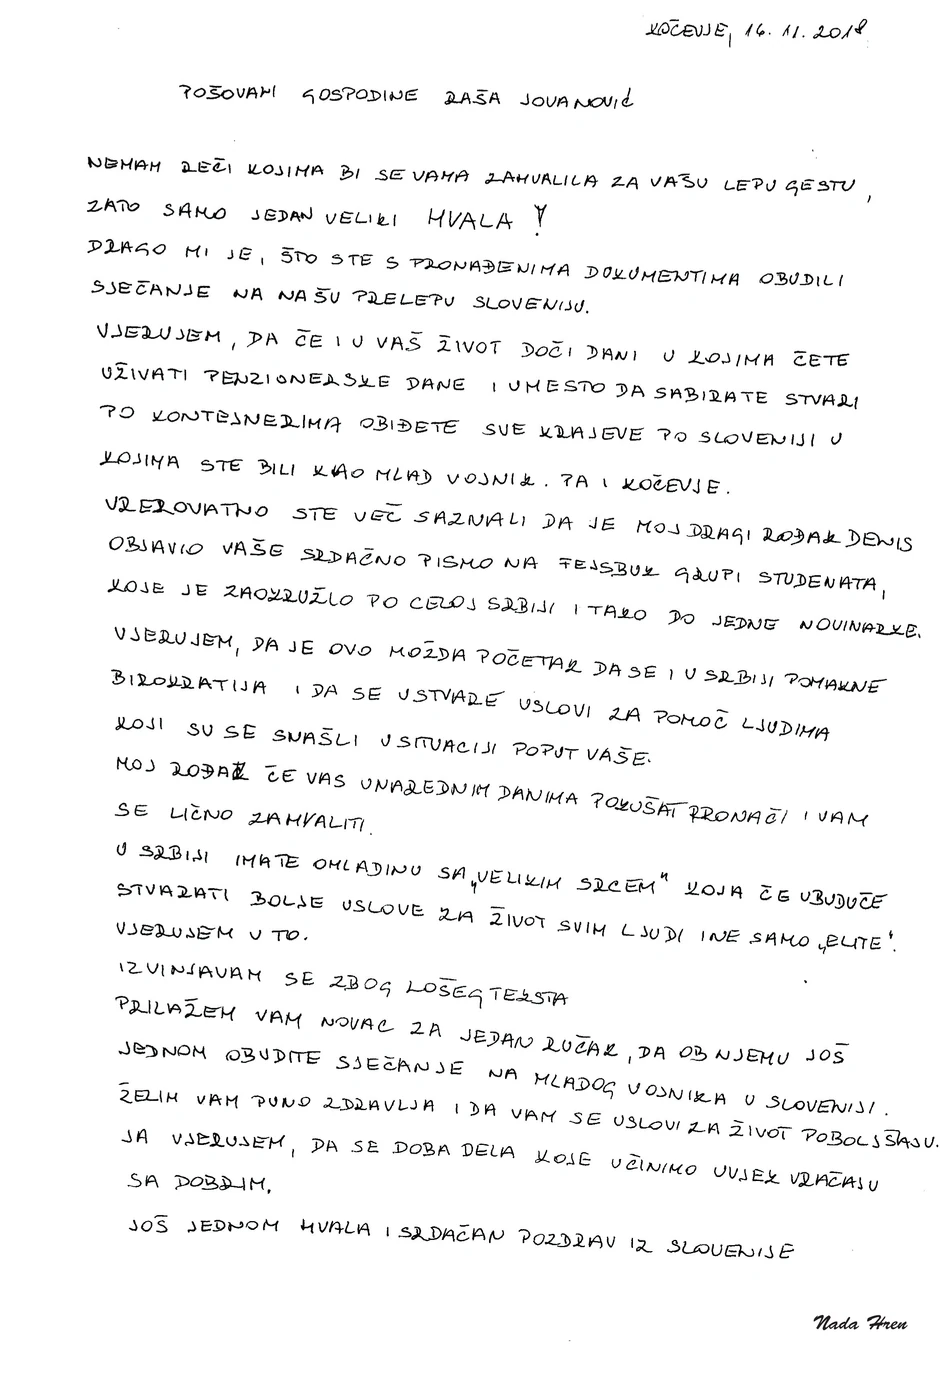 KOČEVJE, 16. 11. 2018
POŠOVANI GOSPODINE RAŠA JOVANOVIĆ
NEMAM REČI KOJIMA BI SE VAMA ZAHVALILA ZA VAŠU LEPU GESTU,
ZATO SAMO JEDAN VELIKI HVALA!
DRAGO MI JE, ŠTO STE S PRONAĐENIMA DOKUMENTIMA OBUDILI
SJEČANJE NA NAŠU PRELEPU SLOVENIJU.
VJERUJEM, DA ČE I U VAŠ ŽIVOT DOČI DANI U KOJIMA ČETE
UŽIVATI PENZIONERSKE DANE I UMESTO DA SABIRATE STVARI
PO KONTEJNERIMA OBIĐETE SVE KRAJEVE PO SLOVENIJI U
KOJIMA STE BILI KAO MLAD VOJNIK. PA I KOČEVJE.
VREROVATNO STE VEČ SAZNALI DA JE MOJ DRAGI ROĐAK DENIS
OBJAVIO VAŠE SRDAČNO PISMO NA FEJSBUK GRUPI STUDENATA,
KOJE JE ZAOKRUŽILO PO CELOJ SRBIJI I TAKO DO JEDNE NOVINARKE.
VJERUJEM, DA JE OVO MOŽDA POČETAK DA SE I U SRBIJI POMAKNE
BIROKRATIJA I DA SE USTVARE USLOVI ZA POMOČ LJUDIMA
KOJI SU SE SNAŠLI U SITUACIJI POPUT VAŠE.
MOJ ROĐAK ČE VAS UNAREDNIM DANIMA POKUŠAT PRONAČI I VAM
SE LIČNO ZAHVALITI.
U SRBIJI IMATE OMLADINU SA „VELIKIM SRCEM" KOJA ČE UBUDUČE
STVARATI BOLJE USLOVE ZA ŽIVOT SVIM LJUDI I NE SAMO „ELITE'.
VJERUJEM U TO.
IZVINJAVAM SE ZBOG LOŠEG TEKSTA
PRILAŽEM VAM NOVAC ZA JEDAN RUČAK, DA OB NJEMU JOŠ
JEDNOM OBUDITE SJEČANJE NA MLADOG VOJNIKA U SLOVENIJI.
ŽELIM VAM PUNO ZDRAVLJA I DA VAM SE USLOVI ZA ŽIVOT POBOLJŠAJU.
JA VJERUJEM, DA SE DOBA DELA KOJE UČINIMO UVJEK VRAČAJU
SA DOBRIM.
JOŠ JEDNOM HVALA I SRDAČAN POZDRAV IZ SLOVENIJE
Nada Hren